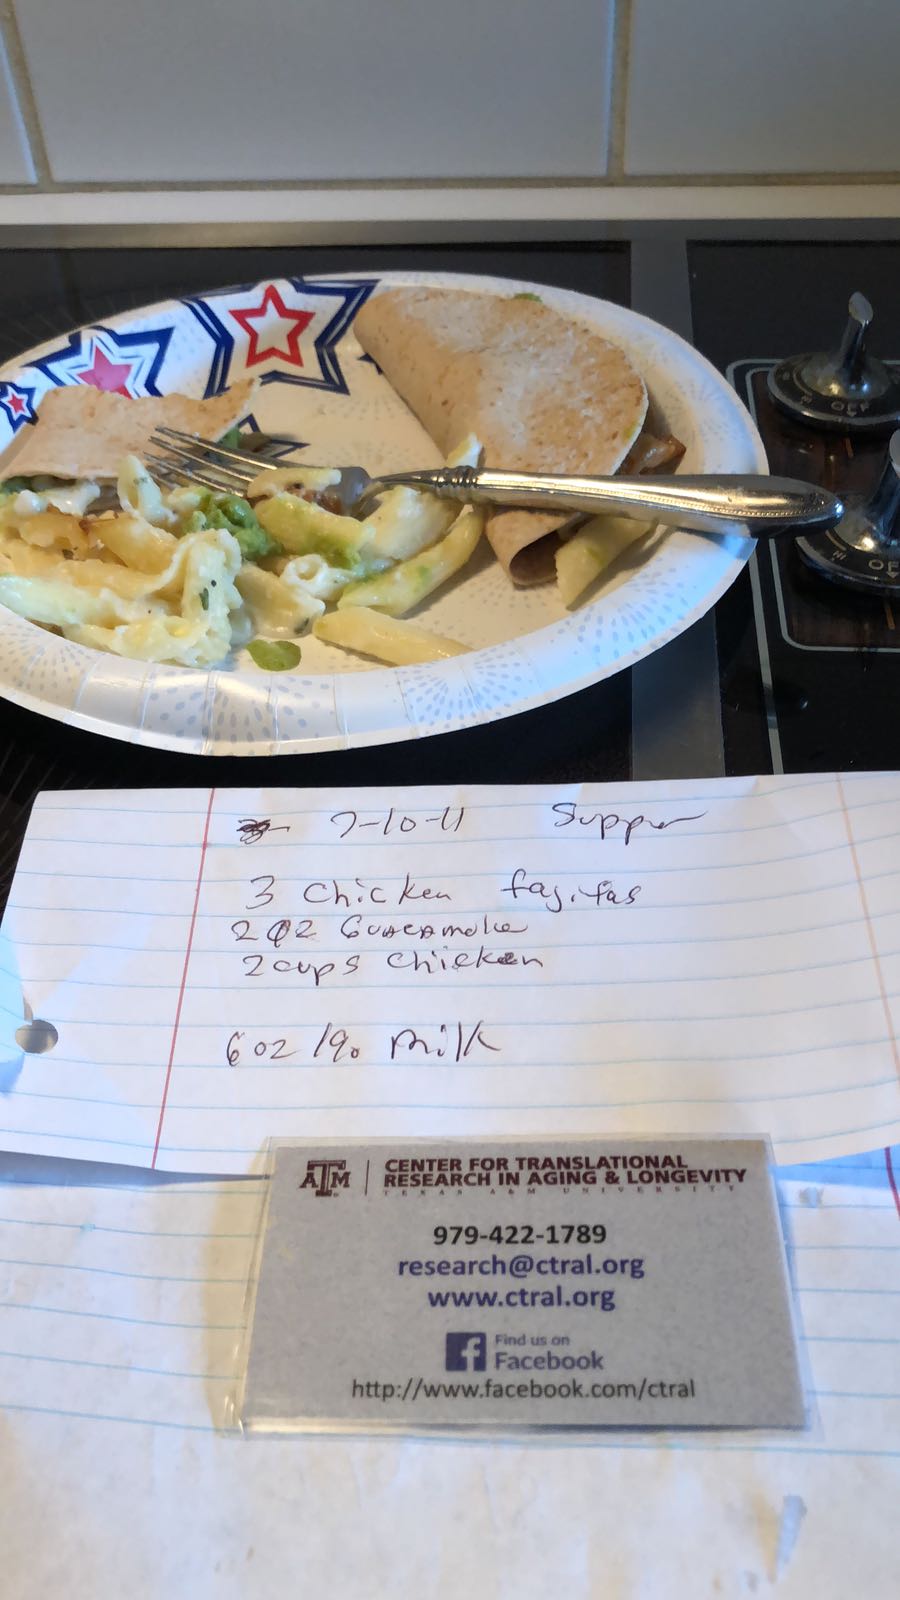 OFF
OFF
7-10-11 Supper
3 Chicken fajitas
2 oz Guacamole
2 cups Chicken
6 oz 1% Milk
ATM CENTER FOR TRANSLATIONAL
RESEARCH IN AGING & LONGEVITY
TEXAS A&M UNIVERSITY
979-422-1789
research@ctral.org
www.ctral.org
f Find us on
Facebook
http://www.facebook.com/ctral